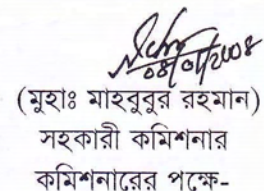 08/01/2008
(মুহাঃ মাহবুবুর রহমান)
সহকারী কমিশনার
কমিশনারের পক্ষে-